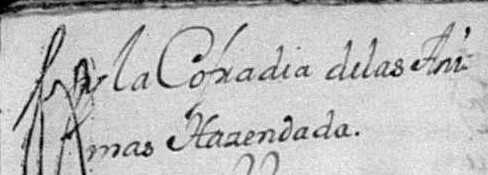 la Cofradia delas Ani
mas Hazendada.